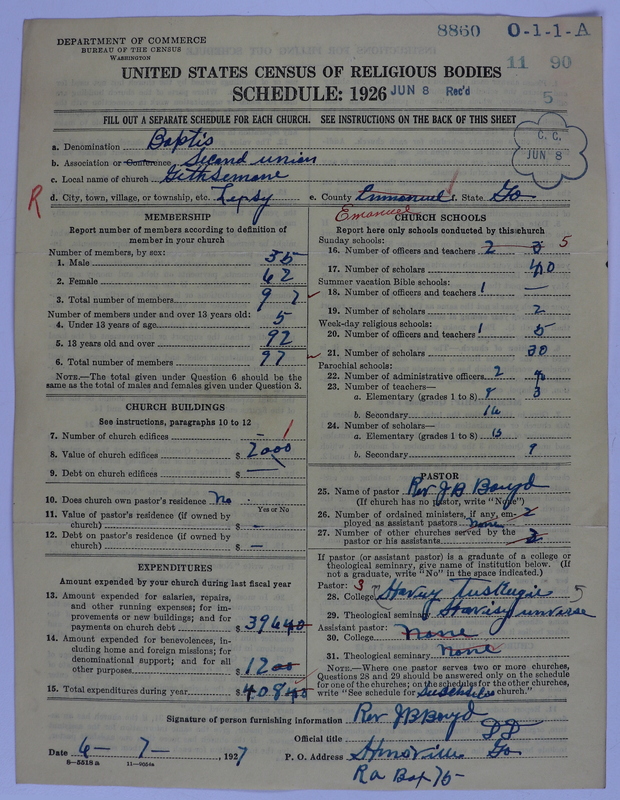 8860 O-1-1-A
DEPARTMENT OF COMMERCE
BUREAU OF THE CENSUS
WASHINGTON
11 90
UNITED STATES CENSUS OF RELIGIOUS BODIES
SCHEDULE: 1926 JUN 8 Rec'd
5
FILL OUT A SEPARATE SCHEDULE FOR EACH CHURCH. SEE INSTRUCTIONS ON THE BACK OF THIS SHEET
C. C.
JUN 8
a. Denomination Baptis
b. Association or Conference Second union
c. Local name of church Gethsemane
R d. City, town, village, or township, etc. e. County Emmanuel f. State Ga
Emanuel
MEMBERSHIP
Report number of members according to definition of
member in your church
Number of members, by sex:
1. Male 35
2. Female 62
3. Total number of members 97
Number of members under and over 13 years old:
4. Under 13 years of age 5
5. 13 years old and over 92
6. Total number of members 97
NOTE.—The total given under Question 6 should be the
same as the total of males and females given under Question 3.
CHURCH BUILDINGS
See instructions, paragraphs 10 to 12
7. Number of church edifices – 1
8. Value of church edifices $ 2000
9. Debt on church edifices $ —
10. Does church own pastor's residence? No
Yes or No
11. Value of pastor's residence (if owned by
church) $ —
12. Debt on pastor's residence (if owned by
church) $ —
EXPENDITURES
Amount expended by your church during last fiscal year
13. Amount expended for salaries, repairs,
and other running expenses; for im-
provements or new buildings; and for
payments on church debt $ 39640
14. Amount expended for benevolences, in-
cluding home and foreign missions; for
denominational support; and for all
other purposes $ 1200
15. Total expenditures during year $ 40840
CHURCH SCHOOLS
Report here only schools conducted by this church
Sunday schools:
16. Number of officers and teachers 2 3 5
17. Number of scholars 40
Summer vacation Bible schools:
18. Number of officers and teachers 1 —
19. Number of scholars 2
Week-day religious schools:
20. Number of officers and teachers 1 5
21. Number of scholars 30
Parochial schools:
22. Number of administrative officers 2
23. Number of teachers—
a. Elementary (grades 1 to 8) 8 3
b. Secondary
24. Number of scholars—
a. Elementary (grades 1 to 8) 15
b. Secondary 9
PASTOR
25. Name of pastor Rev J B Boyd
(If church has no pastor, write "None")
26. Number of ordained ministers, if any, em-
ployed as assistant pastors none 2
27. Number of other churches served by the
pastor or his assistants 2
If pastor (or assistant pastor) is a graduate of a college or
theological seminary, give name of institution below. (If
not a graduate, write "No" in the space indicated.)
Pastor: 3
28. College Tuskugie
29. Theological seminary
Assistant pastor:
30. College None
31. Theological seminary None
NOTE.—Where one pastor serves two or more churches,
Questions 28 and 29 should be answered only on the schedule
for one of the churches; on the schedules for the other churches,
write "See schedule for church."
Signature of person furnishing information Rev J B Boyd
Official title DD
Date 6-7-, 1927 P. O. Address Ga
8-5518 a 11-9054a